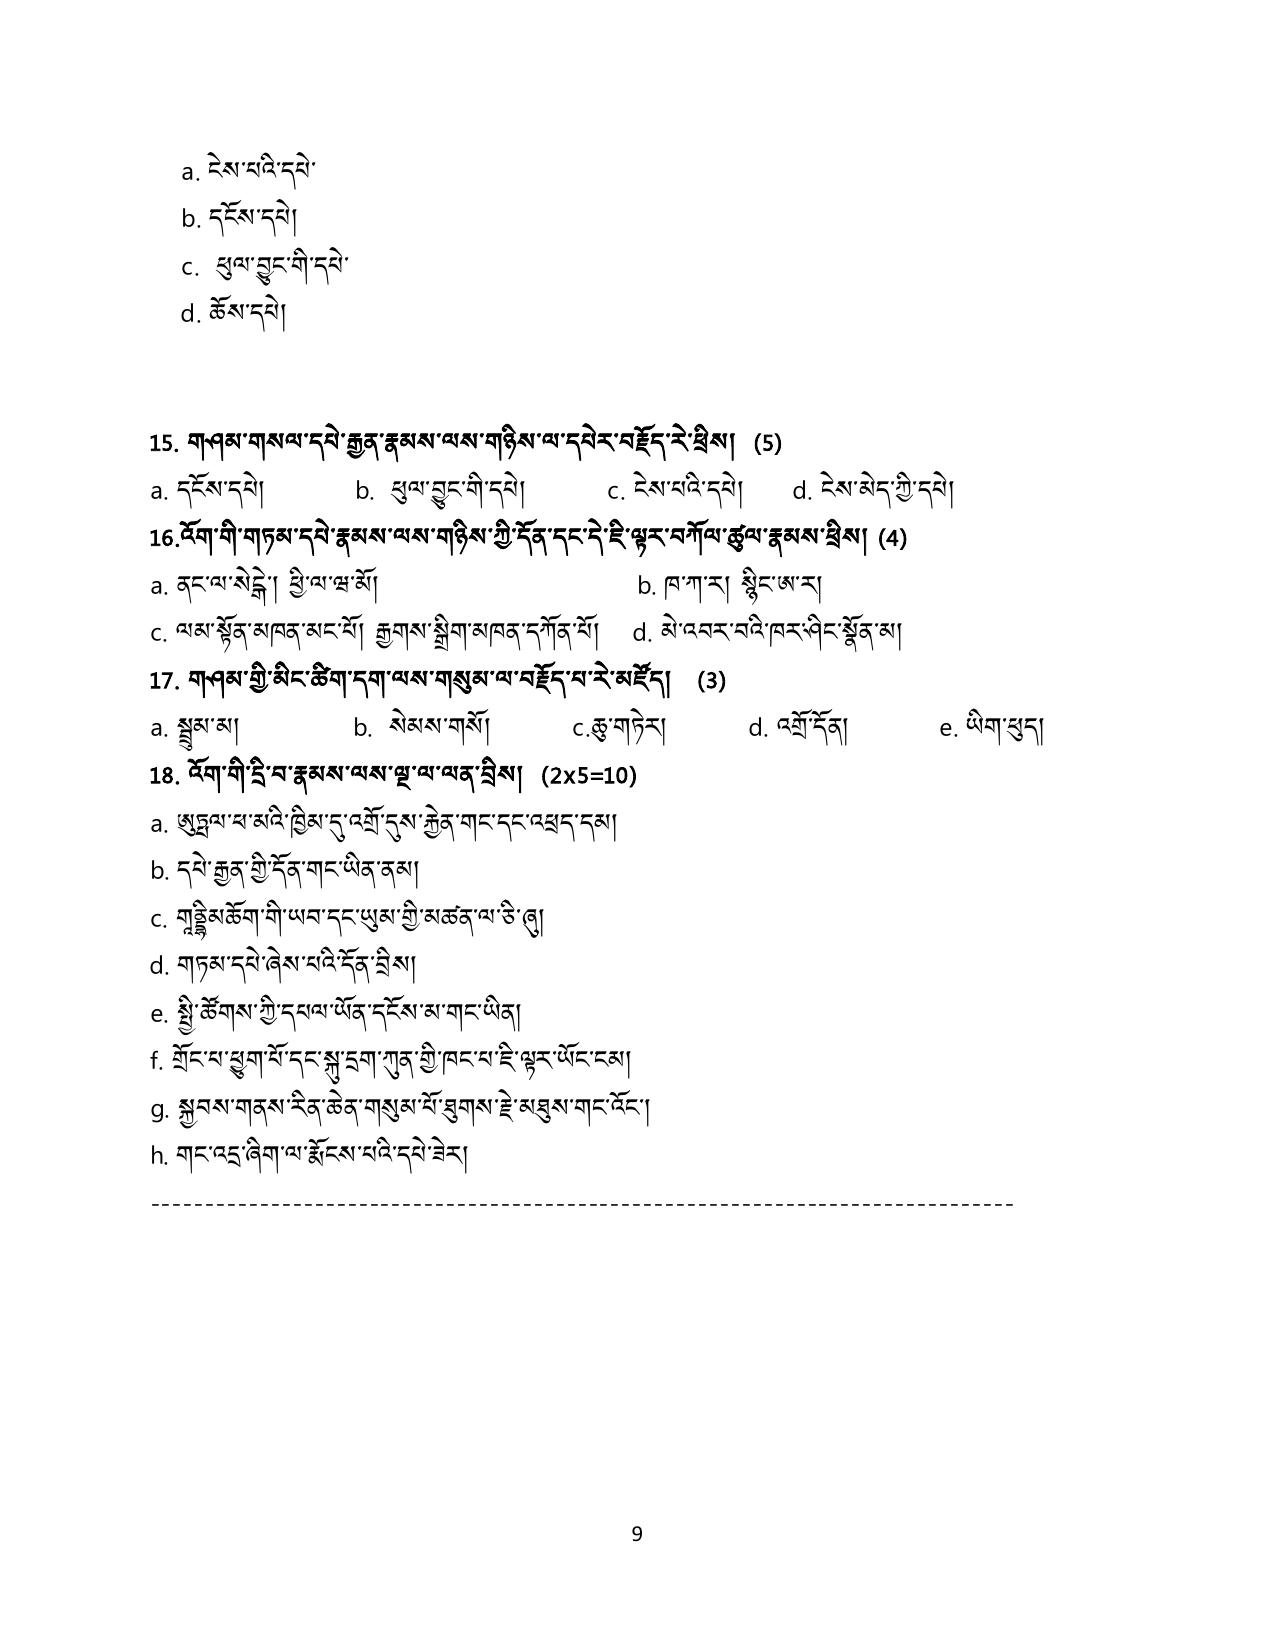 a. ངེས་པའི་དཔེ་
b. དངོས་དཔེ།
c. ཕུལ་བྱུང་གི་དཔེ་
d. ཆོས་དཔེ།
15. གཤམ་གསལ་དཔེ་རྒྱན་རྣམས་ལས་གཉིས་ལ་དཔེར་བརྗོད་རེ་ཕྲིས། (5)
a. དངོས་དཔེ། b. ཕུལ་བྱུང་གི་དཔེ། c. ངེས་པའི་དཔེ། d. ངེས་མེད་ཀྱི་དཔེ།
16.འོག་གི་གཏམ་དཔེ་རྣམས་ལས་གཉིས་ཀྱི་དོན་དང་དེ་ཇི་ལྟར་བཀོལ་ཚུལ་རྣམས་ཕྲིས། (4)
a. ནང་ལ་སེངྒེ་། ཕྱི་ལ་ཝ་མོ། b. ཁ་ཀ་ར། སྙིང་ཨ་ར།
c. ལམ་སྟོན་མཁན་མང་པོ། རྒྱགས་སྒྲིག་མཁན་དཀོན་པོ། d. མེ་འབར་བའི་ཁར་ཤིང་སྣོན་མ།
17. གཤམ་གྱི་མིང་ཚིག་དག་ལས་གསུམ་ལ་བརྗོད་པ་རེ་མཛོད། (3)
a. སྦྲུམ་མ། b. སེམས་གསོ། c.ཆུ་གཏེར། d. འགྲོ་དོན། e. ཡིག་ཕུད།
18. འོག་གི་དྲི་བ་རྣམས་ལས་ལྔ་ལ་ལན་བྲིས། (2x5=10)
a. ཨུཏྤལ་ཕ་མའི་ཁྱིམ་དུ་འགྲོ་དུས་རྐྱེན་གང་དང་འཕྲད་དམ།
b. དཔེ་རྒྱན་གྱི་དོན་གང་ཡིན་ནམ།
c. གཱནྡྷིམཆོག་གི་ཡབ་དང་ཡུམ་གྱི་མཚན་ལ་ཅི་ཞུ།
d. གཏམ་དཔེ་ཞེས་པའི་དོན་བྲིས།
e. སྤྱི་ཚོགས་ཀྱི་དཔལ་ཡོན་དངོས་མ་གང་ཡིན།
f. གྲོང་པ་ཕྱུག་པོ་དང་སྐུ་དྲག་ཀུན་གྱི་ཁང་པ་ཇི་ལྟར་ཡོང་ངམ།
g. སྐྱབས་གནས་རིན་ཆེན་གསུམ་པོ་ཐུགས་རྗེ་མཐུས་གང་འོང་།
h. གང་འདྲ་ཞིག་ལ་རྨོངས་པའི་དཔེ་ཟེར།
--------------------------------------------------------------------------------
9